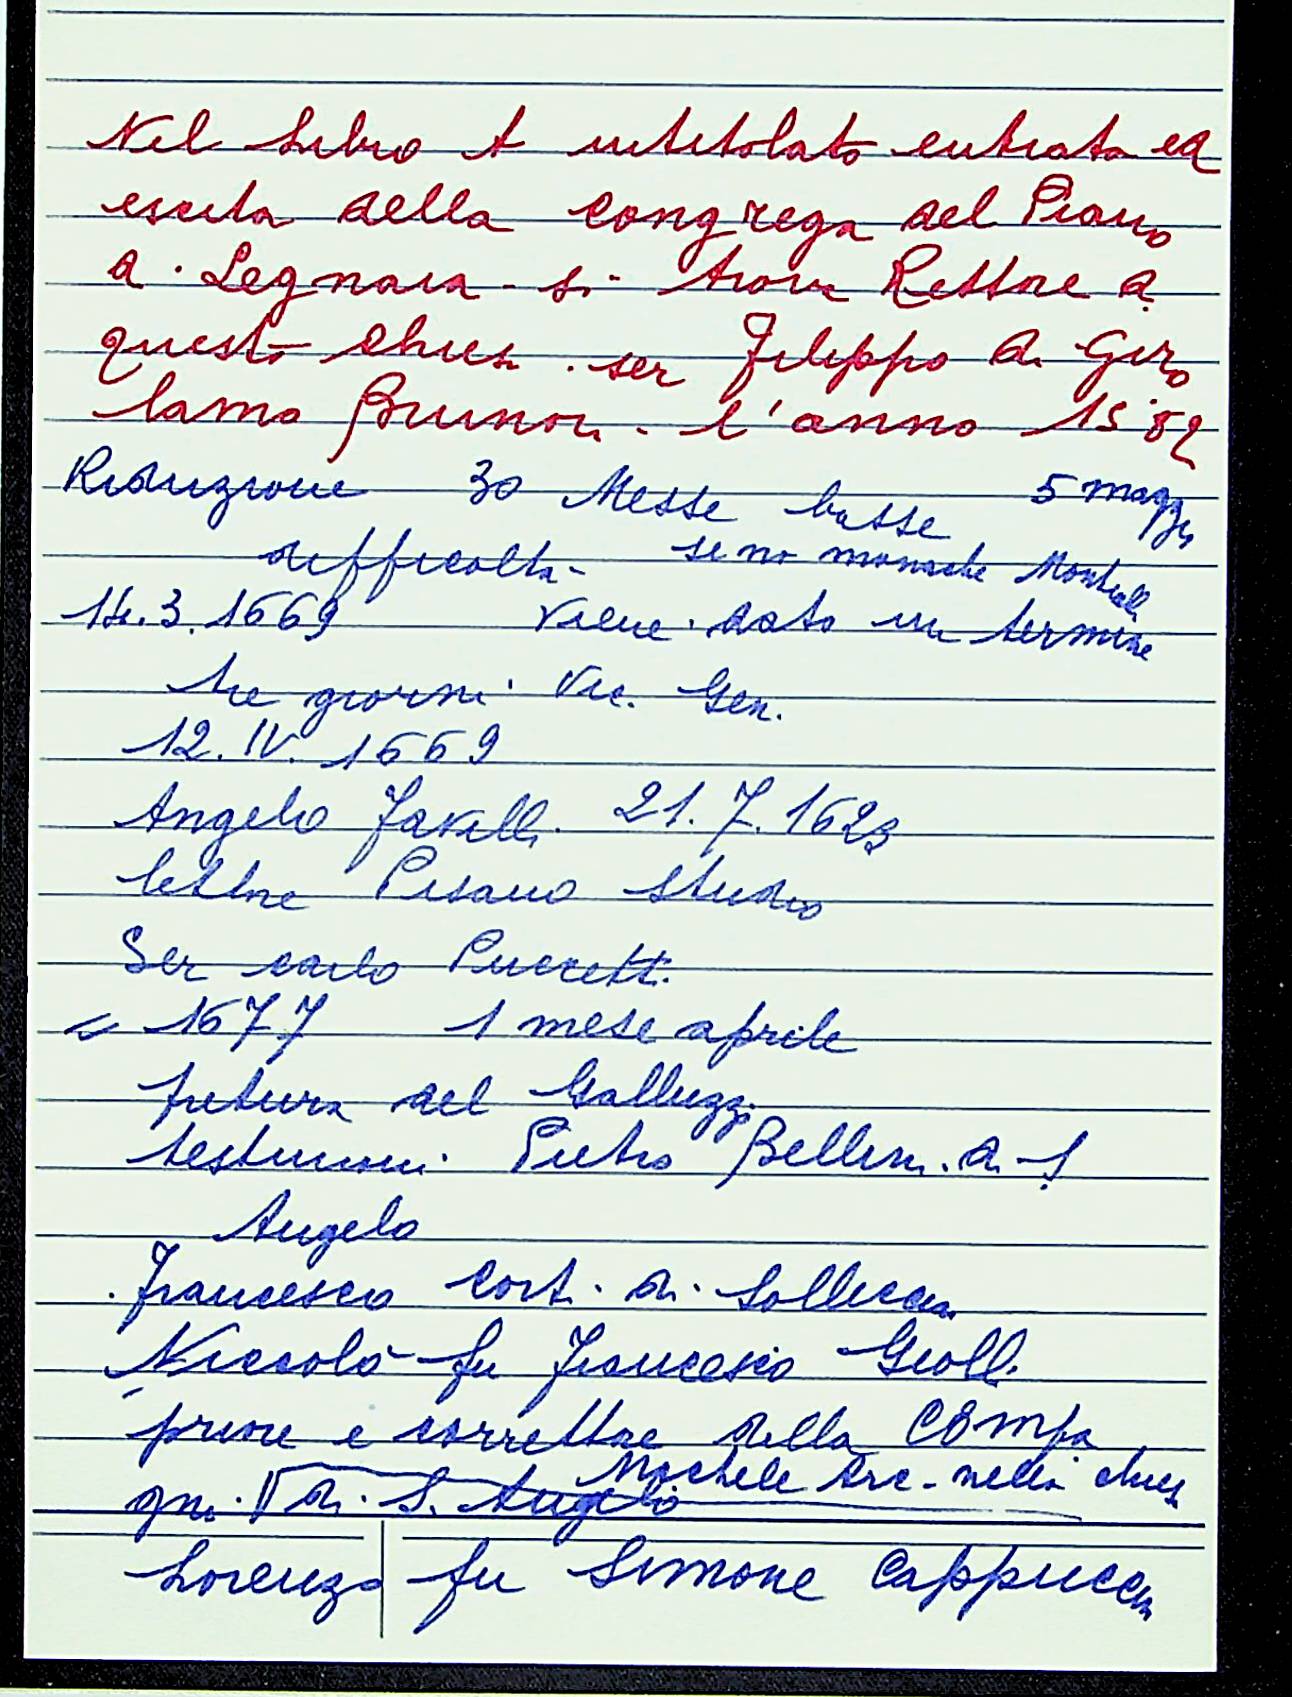 Nel Libro A intitolato entrata ed
escita della congrega del Piano
a. Legnaia - si - trova Rettore d
questa chiesa. ser Filippo di Giro
lamo Brunori - l'anno 1582
Riduzione 30 Messe basse 5 maggio
difficoltà - se no monache
14.3.1669 Viene dato un termine
tre giorni. Vic. Gen.
12. IV. 1669
Angelo Favilli 21. 7. 1623
lettore Pisano studio
Ser Carlo Puccetti
1677 1 mese aprile
futura del Galluzzi
testimoni. Pietro Bellini. di S
Angelo
Francesco Cort. di. Solliccia
Niccolò fu Francesco Giolli
priore e correttore della Compa
gni. di. S. Angelo Michele Arc. nella chies
Lorenzo fu Simone Cappucci